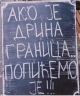 АКО ЈЕ
ДРИНА
ГРАНИЦА...
ПОПИЋЕМО
ЈЕ!!!